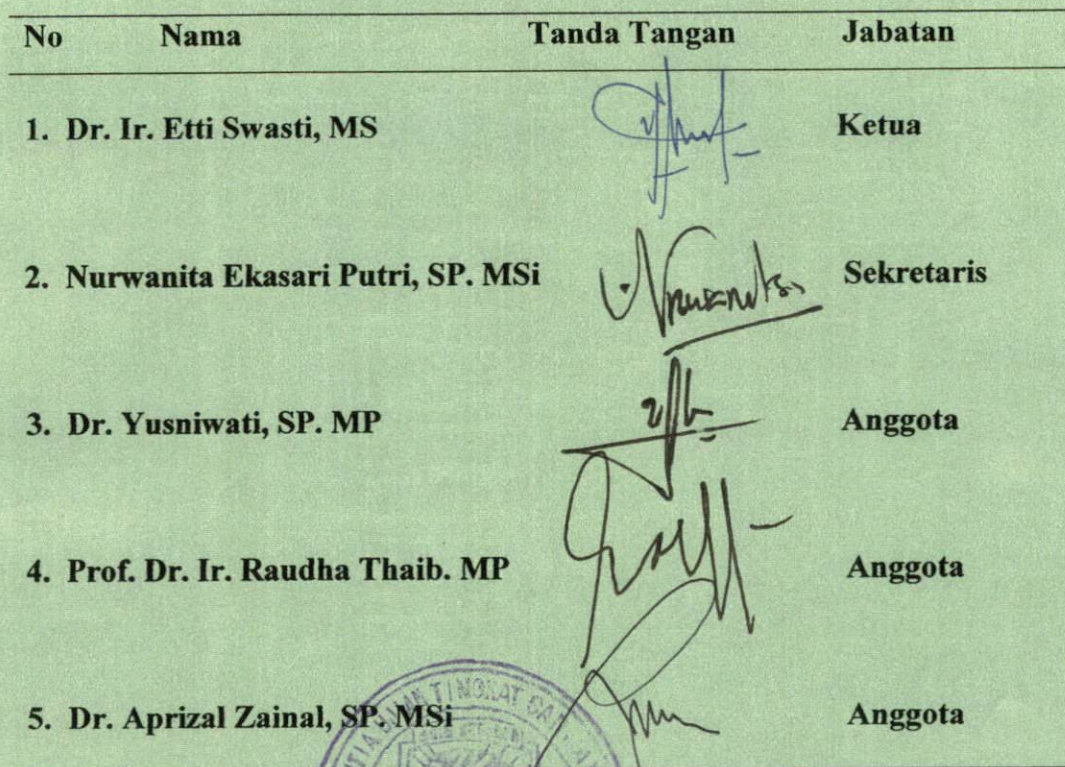 No Nama Tanda Tangan Jabatan
1. Dr. Ir. Etti Swasti, MS Ketua
2. Nurwanita Ekasari Putri, SP. MSi Sekretaris
3. Dr. Yusniwati, SP. MP Anggota
4. Prof. Dr. Ir. Raudha Thaib. MP Anggota
5. Dr. Aprizal Zainal, SP. MSi Anggota
TINGKAT